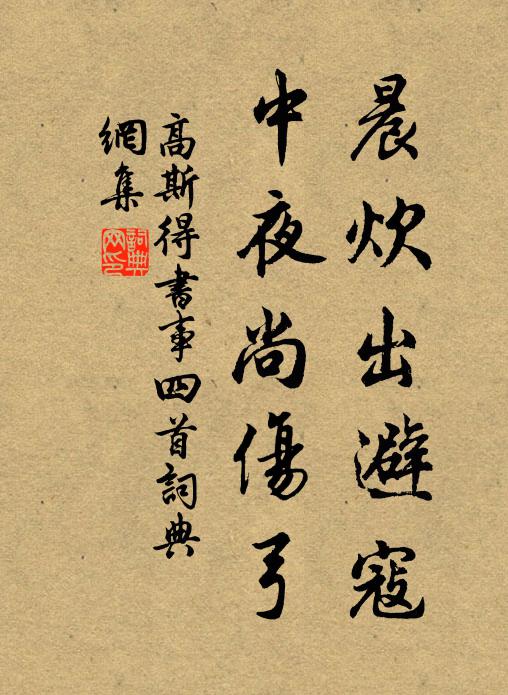 晨炊出避寇
中夜尚傷弓
高斯得書事四首詞典
網集
詞典
网印